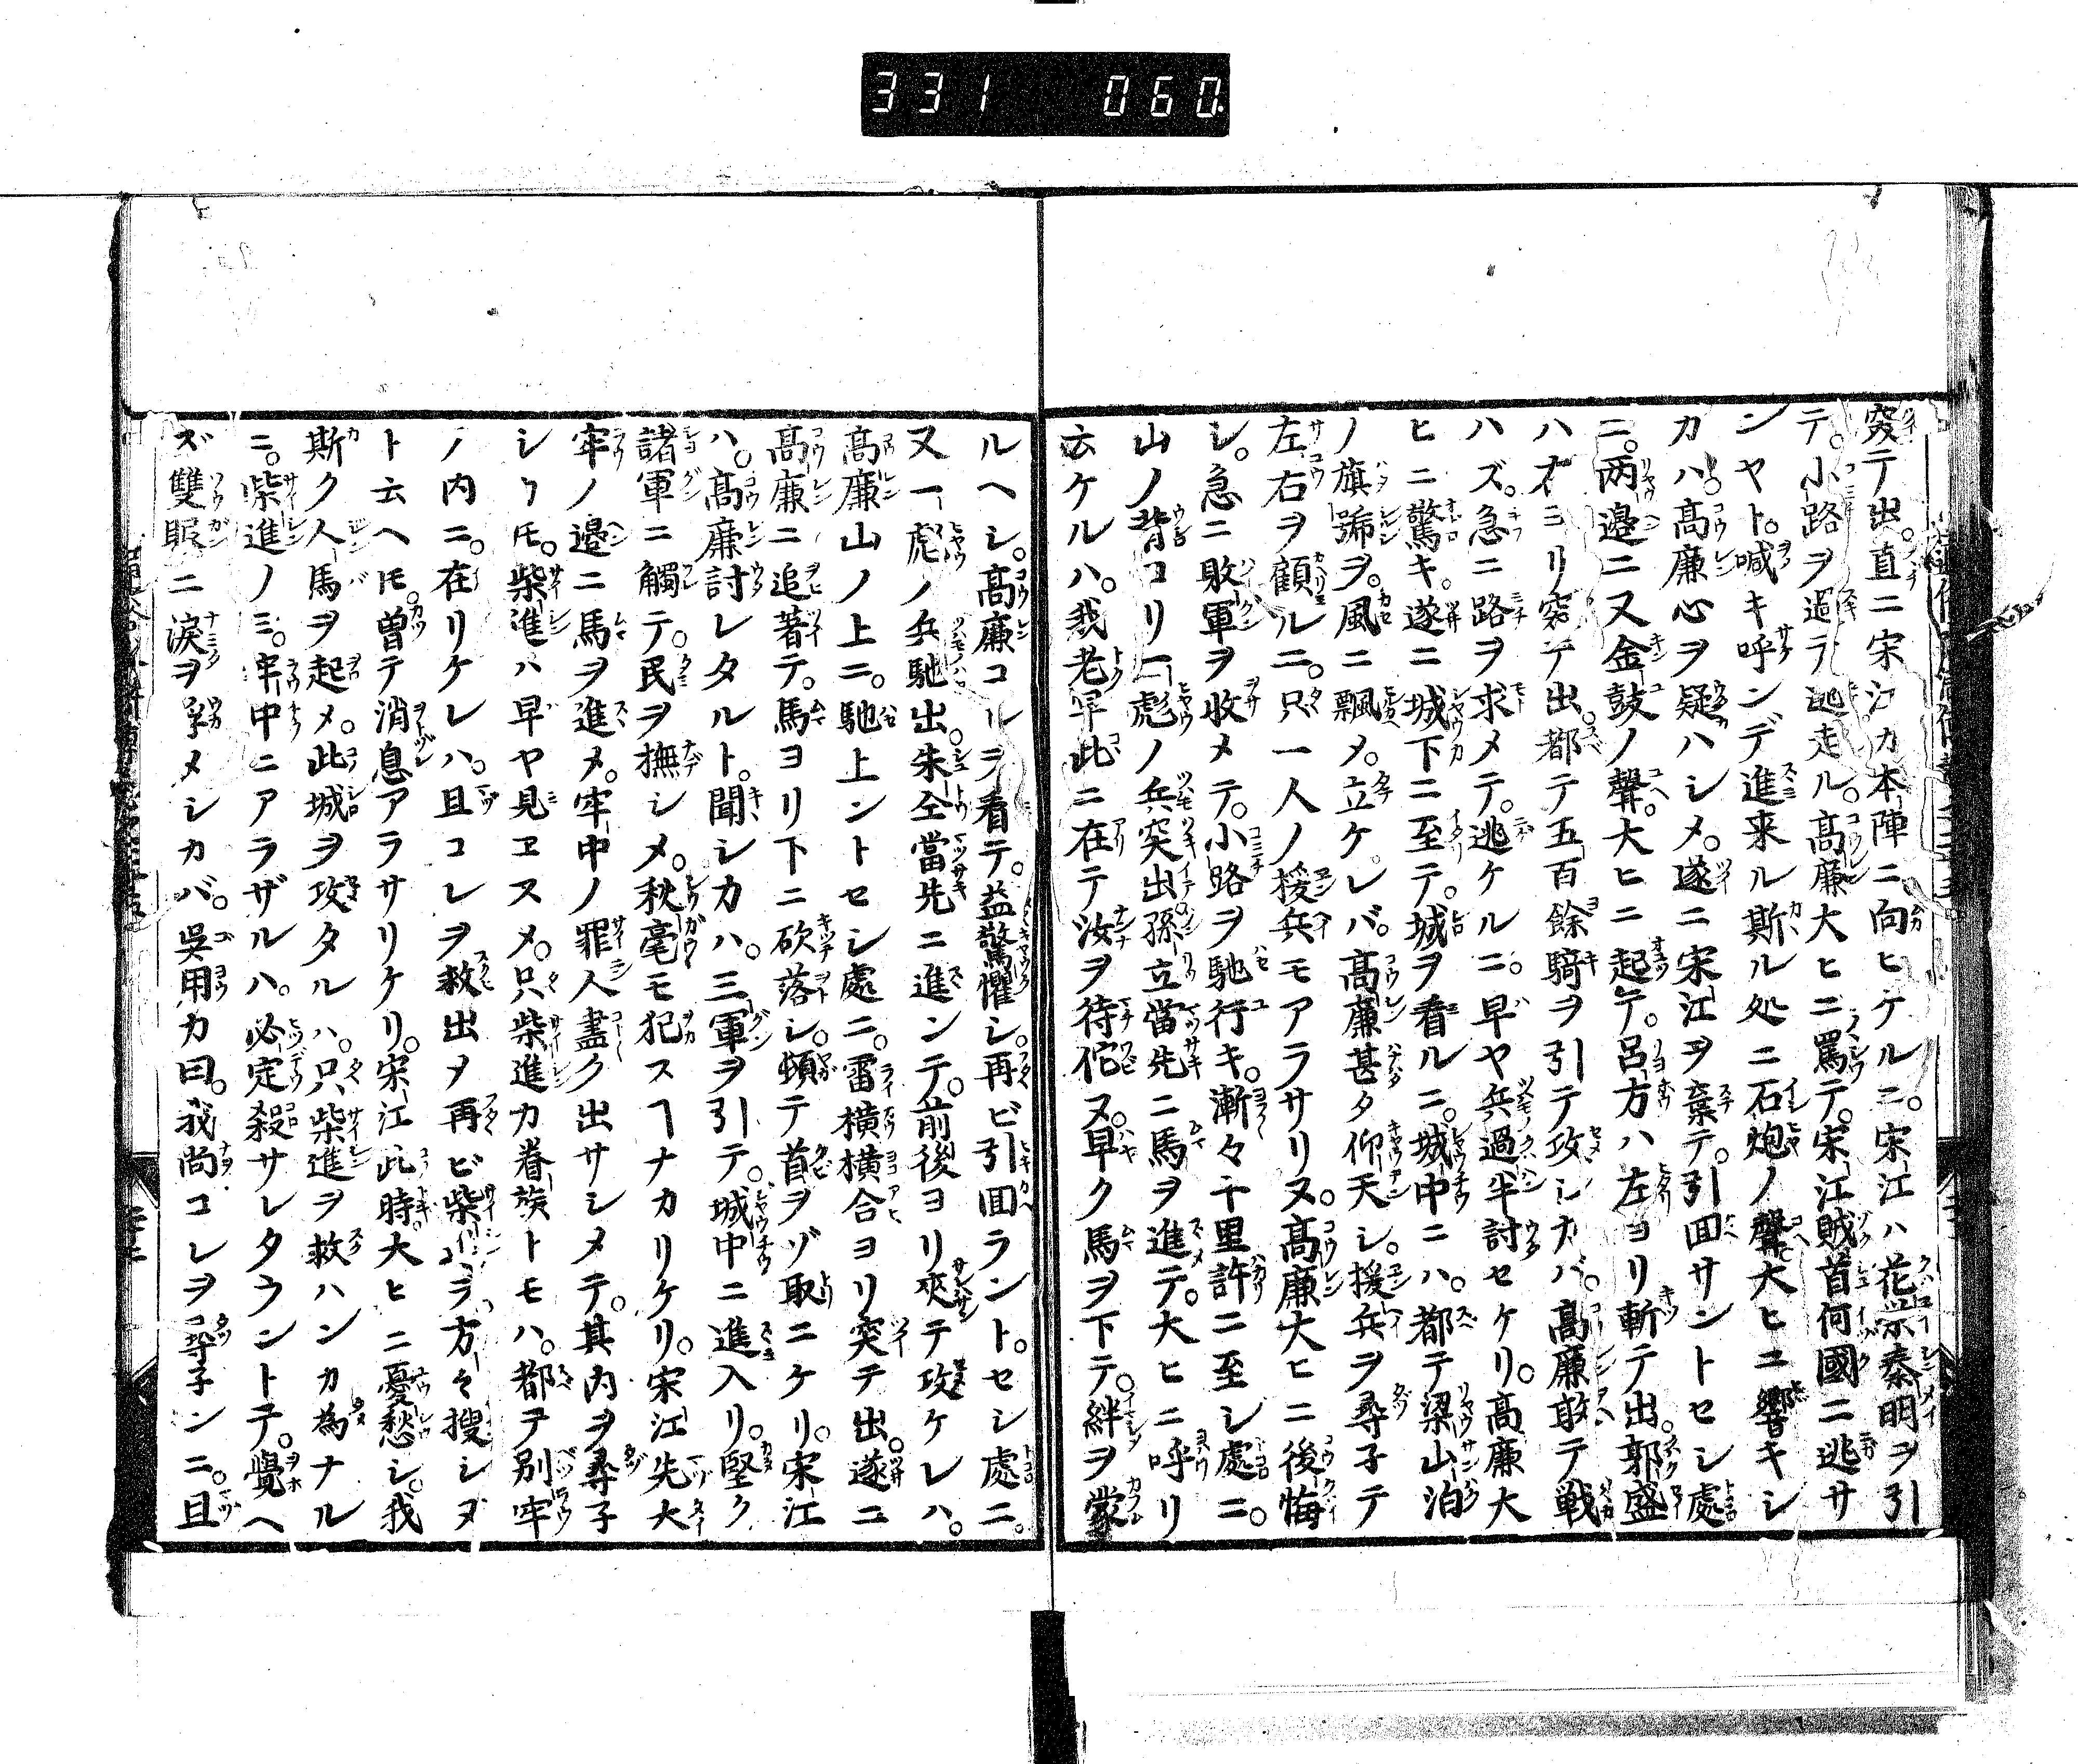 331 060
突テ出。直ニ宋江カ本陣ニ向ヒケルニ。宋江ハ花栄秦明ヲ引
テ。小路ヲ過テ逃走ル。高廉大ヒニ罵テ。宋江賊首何國ニ逃サ
ンヤト。喊キ呼ンデ進来ル斯ル処ニ石炮ノ聲大ヒニ響キシ
カハ。高廉心ヲ疑ハシメ。遂ニ宋江ヲ棄テ。引囬サントセシ處
ニ。两邉ニ又金鼓ノ聲。大ヒニ起テ。呂方ハ左ヨリ斬テ出。郭盛
ハ右ヨリ突テ出。都テ五百餘騎ヲ引テ攻シカバ。高廉敢テ戦
ハズ。急ニ路ヲ求メテ。逃ケルニ。早ヤ兵過半討セケリ。高廉大
ヒニ驚キ。遂ニ城下ニ至テ。城ヲ看ルニ。城中ニハ。都テ梁山泊
ノ旗號ヲ。風ニ飄メ。立ケレバ。高廉甚タ仰天シ。援兵ヲ尋子テ
左右ヲ顧ルニ。只一人ノ援兵モアラサリヌ。高廉大ヒニ後悔
シ。急ニ敗軍ヲ收メテ。小路ヲ馳行キ。漸々十里許ニ至シ處ニ。
山ノ背ヨリ一彪ノ兵突出孫立當先ニ馬ヲ進テ。大ヒニ呼リ
云ケルハ。我老早此ニ在テ汝ヲ待侘ヌ。早ク馬ヲ下テ。絆ヲ蒙
ルヘシ。高廉コレヲ看テ。益驚懼シ。再ビ引囬ラント。セシ處ニ。
又一彪ノ兵馳出。朱仝當先ニ進ンテ。前後ヨリ夾テ攻ケレハ。
高廉山ノ上ニ。馳上ントセシ處ニ。雷横横合ヨリ突テ出。遂ニ
高廉ニ追著テ。馬ヨリ下ニ砍落シ。頓テ首ヲゾ取ニケリ。宋江
ハ。高廉討レタルト。聞シカハ。三軍ヲ引テ。城中ニ進入リ。堅ク
諸軍ニ觸テ。民ヲ撫シメ。秋毫モ犯スヿナカリケリ。宋江先大
牢ノ邉ニ馬ヲ進メ。牢中ノ罪人盡ク出サシメテ。其内ヲ尋子
シカ𪜈。柴進ハ早ヤ見ヱスメ。只柴進カ眷族トモハ。都テ別牢
ノ内ニ。在リケレハ。且コレヲ救出メ再ビ柴進ヲ。方々搜シヌ
ト云ヘ𪜈。曽テ消息アラサリケリ。宋江此時大ヒニ憂愁シ。我
斯ク人馬ヲ起メ。此城ヲ攻タルハ。只柴進ヲ救ハンカ為ナル
ニ。柴進ノミ。牢中ニアラザルハ。必定殺サレタラントテ。覺ヘ
ズ雙眼ニ淚ヲ浮メシカバ。呉用カ曰。我尚コレヲ尋子ンニ。且